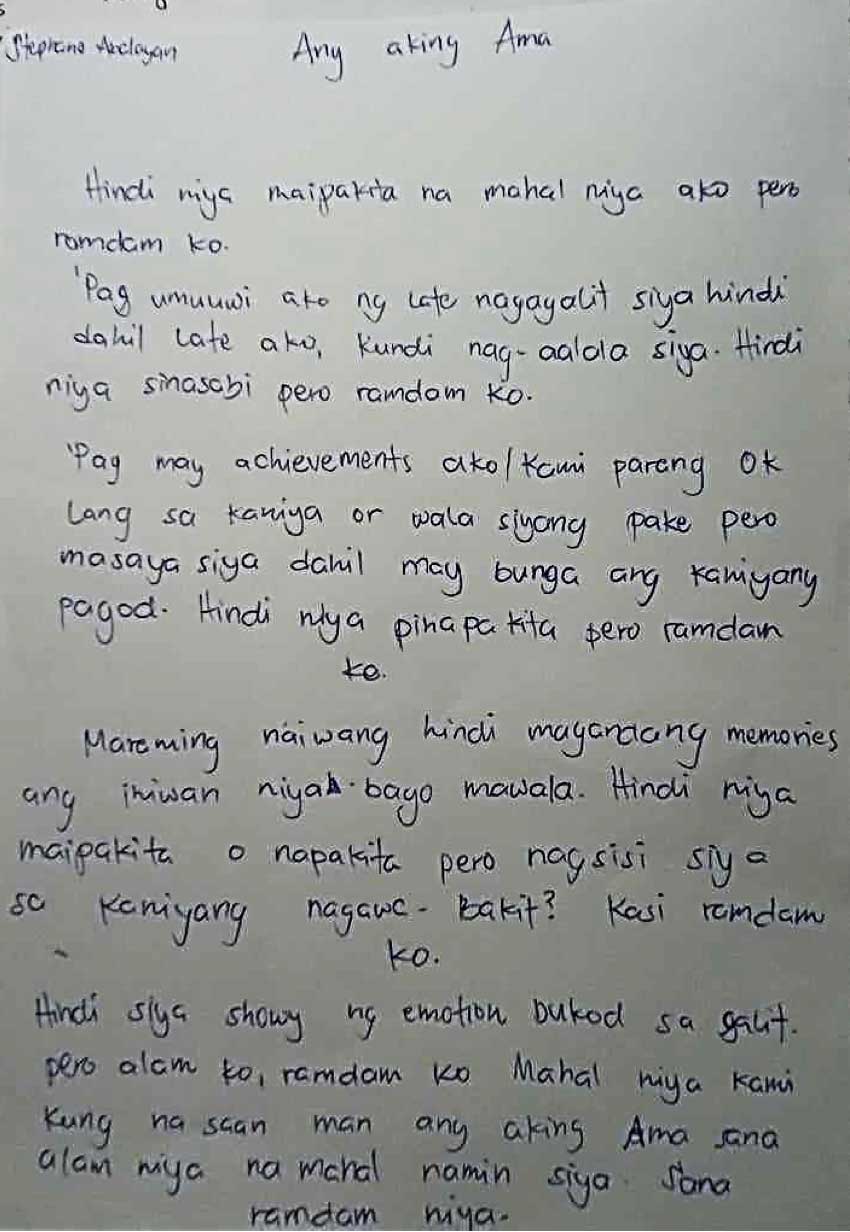 Ang aking Ama
Hindi niya maipakita na mahal niya ako pero
ramdam ko.
'Pag umuuwi ako ng late nagagalit siya hindi
dahil late ako, kundi nag-aalala siya. Hindi
niya sinasabi pero ramdam ko.
'Pag may achievements ako/kami parang ok
lang sa kaniya or wala siyang pake pero
masaya siya dahil may bunga ang kaniyang
pagod. Hindi niya pinapakita pero ramdam
ko.
Maraming naiwang hindi magandang memories
ang iniwan niya bago mawala. Hindi niya
maipakita o napakita pero nagsisi siya
sa kaniyang nagawa - Bakit? Kasi ramdam
ko.
Hindi siya showy ng emotion bukod sa galit.
pero alam ko, ramdam ko Mahal niya kami
kung na saan man ang aking Ama sana
alam niya na mahal namin siya. Sana
ramdam niya.